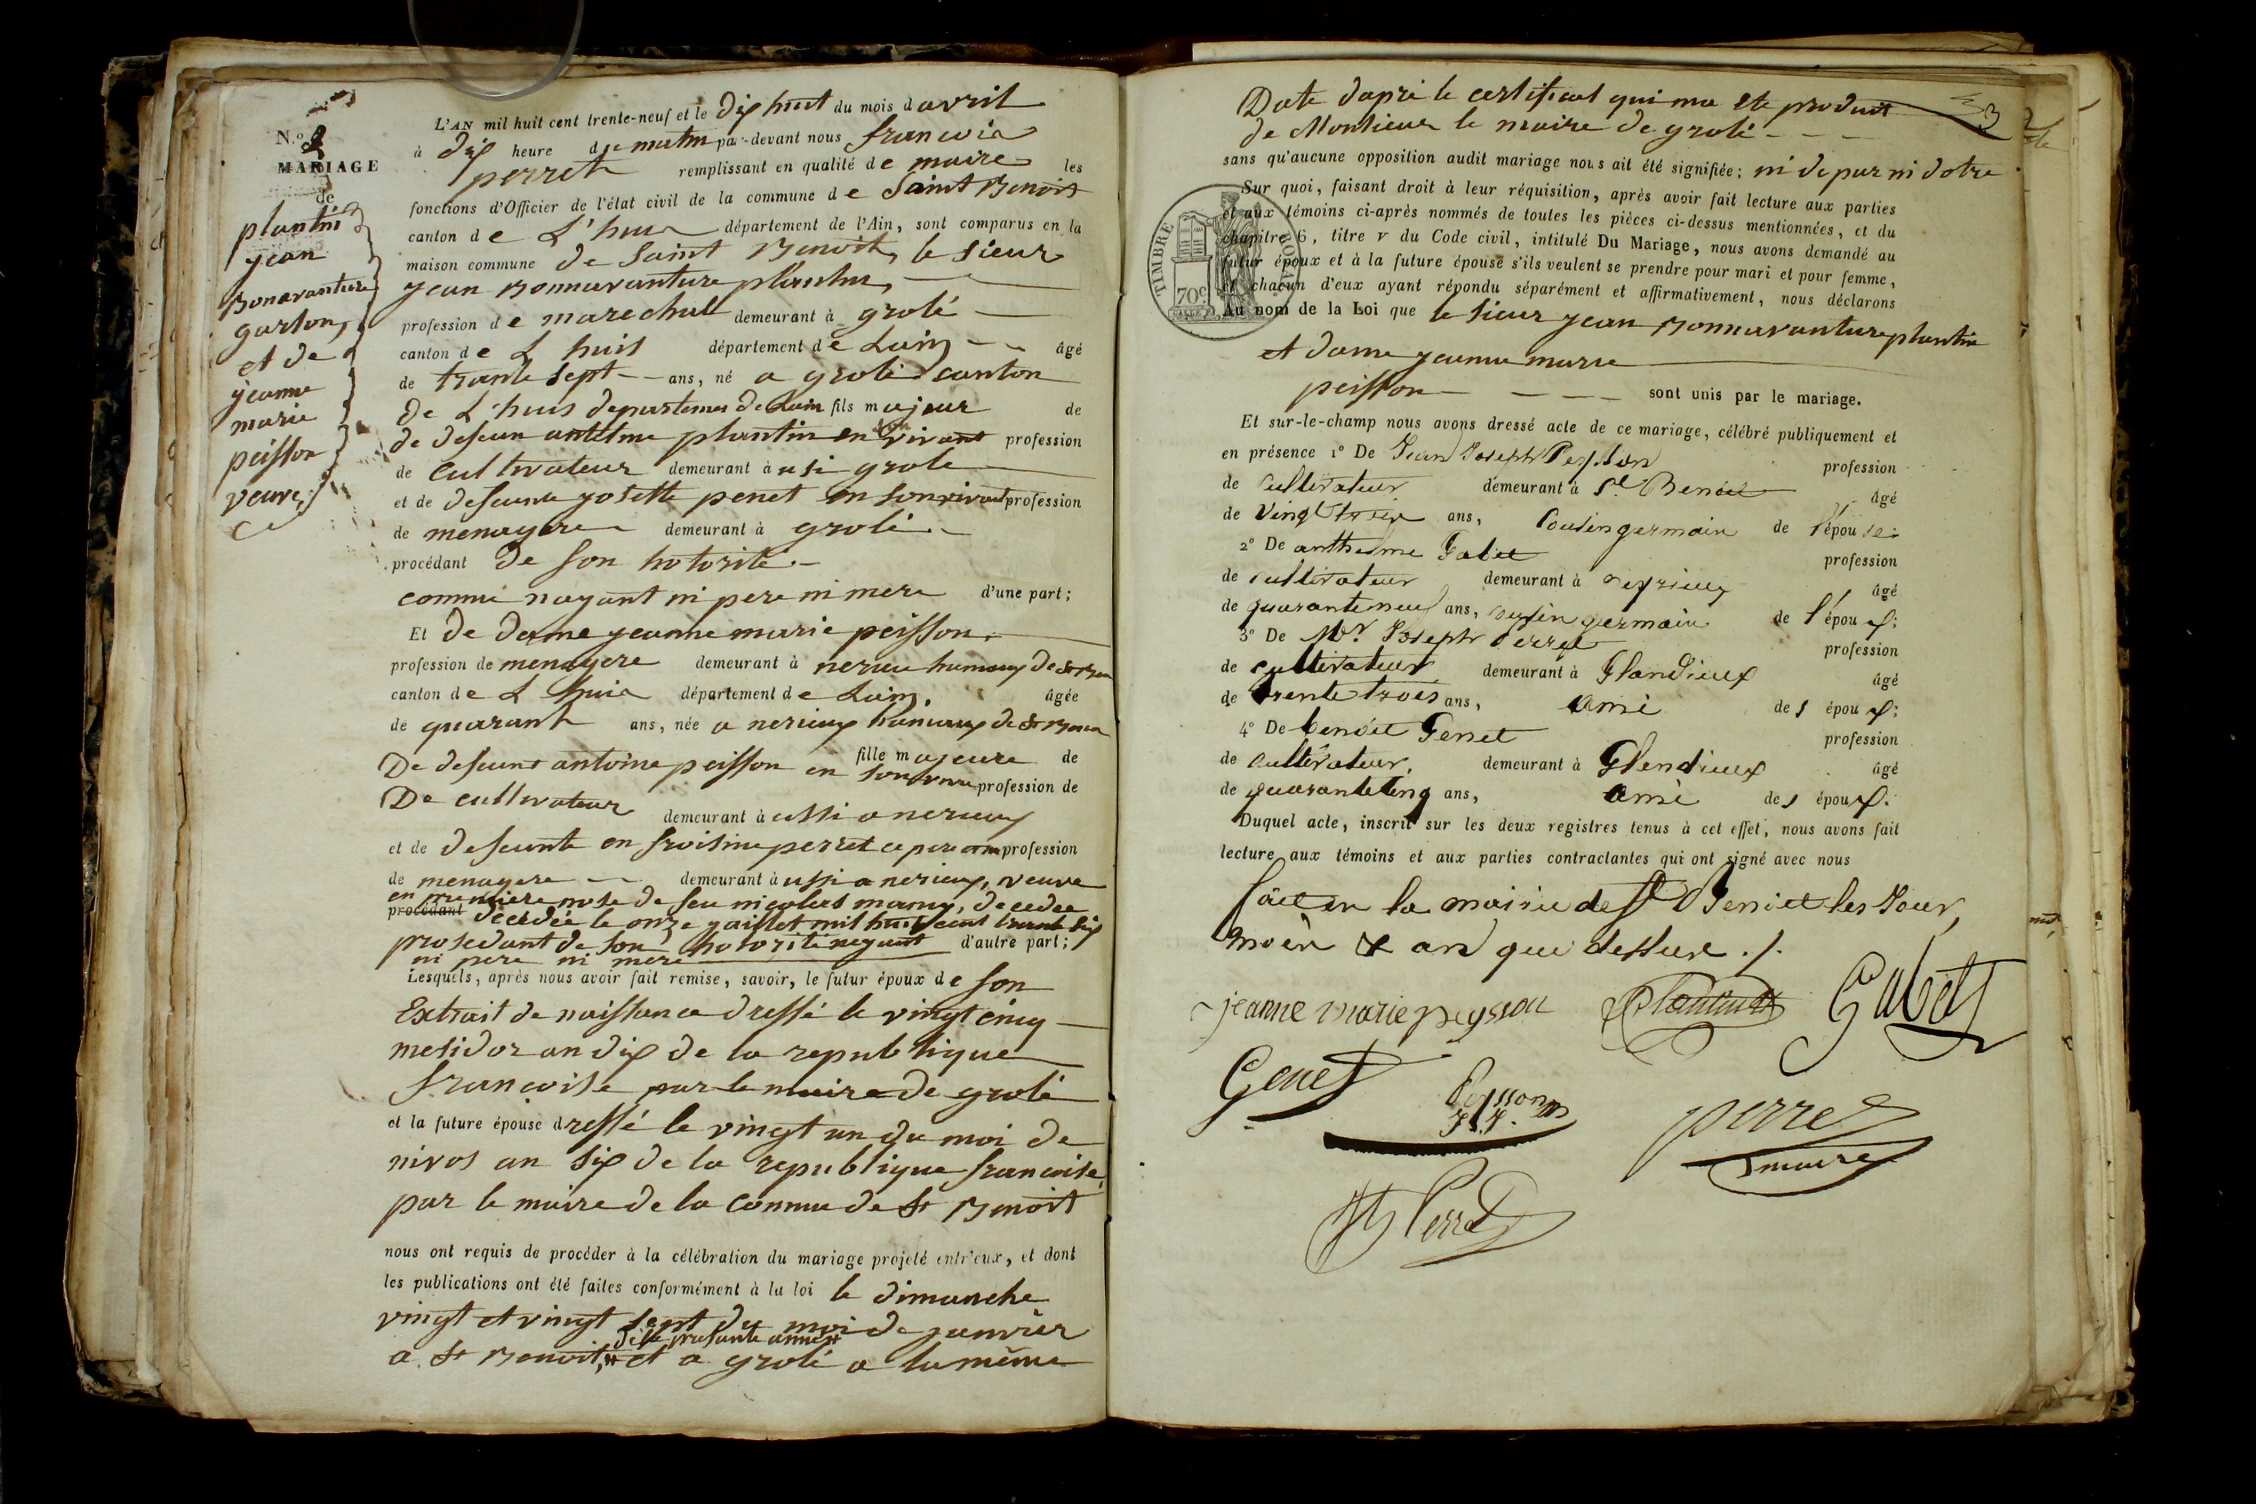 N.º 3
MARIAGE
de
plantin
jean
Bonavanture
garson,
et de
jeanne
marie
peisson
veuve
L'AN mil huit cent trente-neuf et le dix huit du mois d avril
à dix heure du matin par-devant nous francois
perret remplissant en qualité de maire les
fonctions d'Officier de l'état civil de la commune de Saint Benoit
canton de L'huis département de l'Ain, sont comparus en la
maison commune de Saint Benoit, le sieur
jean Bonnavanture plantin,
profession de marechal demeurant à grolé
canton de L huis département de Lain âgé
de trante sept ans, né a grolé canton
de L'huis departemen de Lain fils majeur de
de defeun antelme plantin en son vivant profession
de cultivateur demeurant à usi grole
et de defeunte josette penet en son vivant profession
de menagere demeurant à grolé
procédant de son hotorité
comme nayant ni pere ni mere d'une part;
Et de dame jeanne marie peisson
profession de menagere demeurant à nerieu hamaux de St Ben
canton de L huis département de Lain, âgée
de quarant ans, née a nerieux hamaux de St Benoi
De defeunt antoine peisson en son vivan fille majeure de
profession de
De cultivateur demeurant à ussi a nerieux
et de defeunte en froisine perret ce pere profession
de menagere demeurant à ussi a nerieux, veuve
en premiere nose de feu nicolas mamy, decedee
procédant decedée le onze juillet mil huit cent trante six
prosedant de son hotorité neyant d'autre part;
ni pere ni mere
Lesquels, après nous avoir fait remise, savoir, le futur époux de son
Extrait de naissance dressé le vingt cinq
mesidor an dix de la republique
francoise par le maire de grolé
et la future épouse dressé le vingt un du moi de
nivos an six de la republique francoise
par le maire de la commune de St Benoit
nous ont requis de procéder à la célébration du mariage projeté entr'eux, et dont
les publications ont été faites conformément à la loi le dimanche
vingt et vingt sept du moi de janvier
de la presante année
a St Benoit, et a grolé a la même
3
Date dapré le certificat qui ma ete produit
de Monsieur le maire de grolé
sans qu'aucune opposition audit mariage nous ait été signifiée; ni de par ni dotre
Sur quoi, faisant droit à leur réquisition, après avoir fait lecture aux parties
et aux témoins ci-après nommés de toutes les pièces ci-dessus mentionnées, et du
chapitre 6, titre v du Code civil, intitulé Du Mariage, nous avons demandé au
futur époux et à la future épouse s'ils veulent se prendre pour mari et pour femme,
et chacun d'eux ayant répondu séparément et affirmativement, nous déclarons
Au nom de la Loi que le sieur jean Bonnavanture plantin
TIMBRE ROYAL
70c
et dame jeanne marie
peisson sont unis par le mariage.
Et sur-le-champ nous avons dressé acte de ce mariage, célébré publiquement et
en présence 1º De Jean Joseph Peysson profession
de cultivateur demeurant à St Benoit âgé
de vingt trois ans, Cousin germain de l'épouse:
2º De anthelme Gabet profession
de cultivateur demeurant à âgé
de quarante neuf ans, cousin germain de l'époux:
3º De Mr. Joseph Perret profession
de cultivateur demeurant à Glandieux âgé
de trente trois ans, ami des époux:
4º De benoit Genet profession
de cultivateur, demeurant à Glendieux âgé
de quarante cinq ans, ami des époux.
Duquel acte, inscrit sur les deux registres tenus à cet effet, nous avons fait
lecture aux témoins et aux parties contractantes qui ont signé avec nous
fait en la mairie de St Benoit les Jour,
mois & an que dessus ./.
jeanne marie peysson Plantin Gabet
Genet Peysson
J. J. perret
maire
Jh Perret